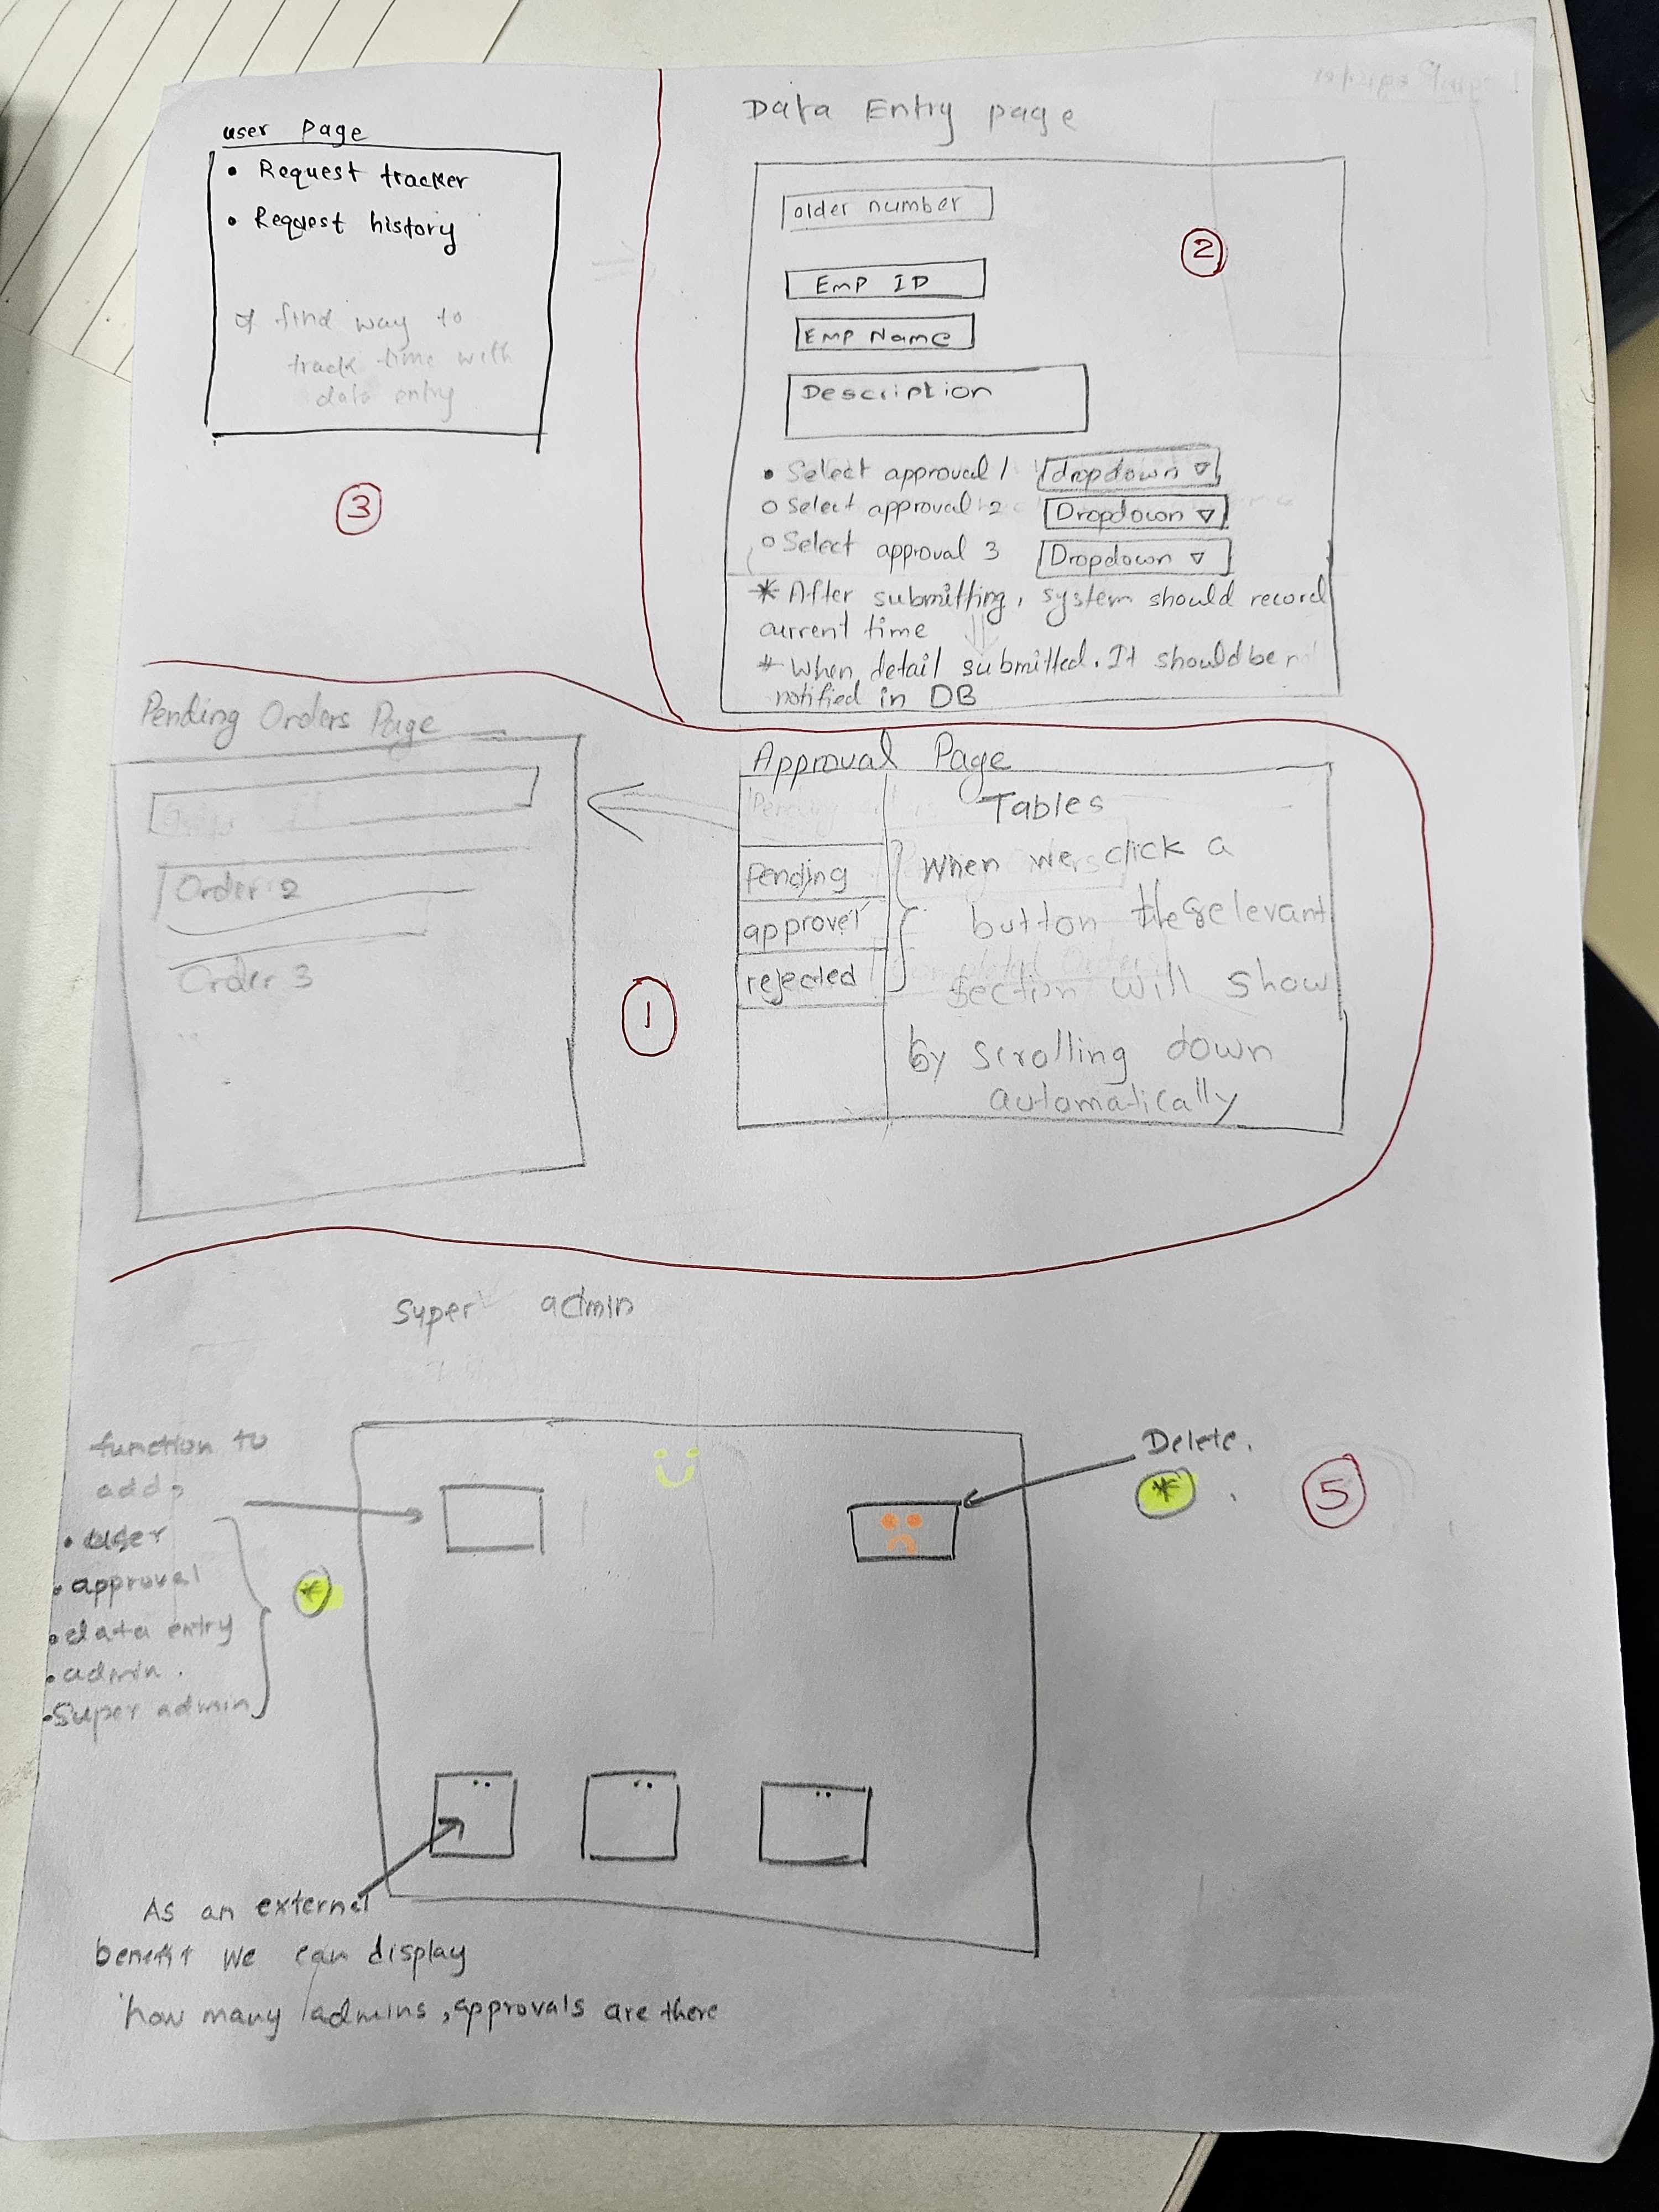 user page
• Request tracker
• Request history
* find way to
track time with
data entry
3
Data Entry page
older number
2
Emp ID
Emp Name
Description
• Select approval 1 dropdown ▽
○ Select approval 2 Dropdown ▽
○ Select approval 3 Dropdown ▽
* After submitting, system should record
current time
* When detail submitted. It should be
notified in DB
Pending Orders Page
Order 2
Order 3
1
Approval Page
Pending
Tables
pending
approvel
rejected
When we click a
button the relevant
section will show
by scrolling down
automatically
Super admin
function to
add
• user
• approval
• data entry
• admin.
• Super admin
*
Delete.
*
5
As an external
benefit we can display
how many admins, approvals are there